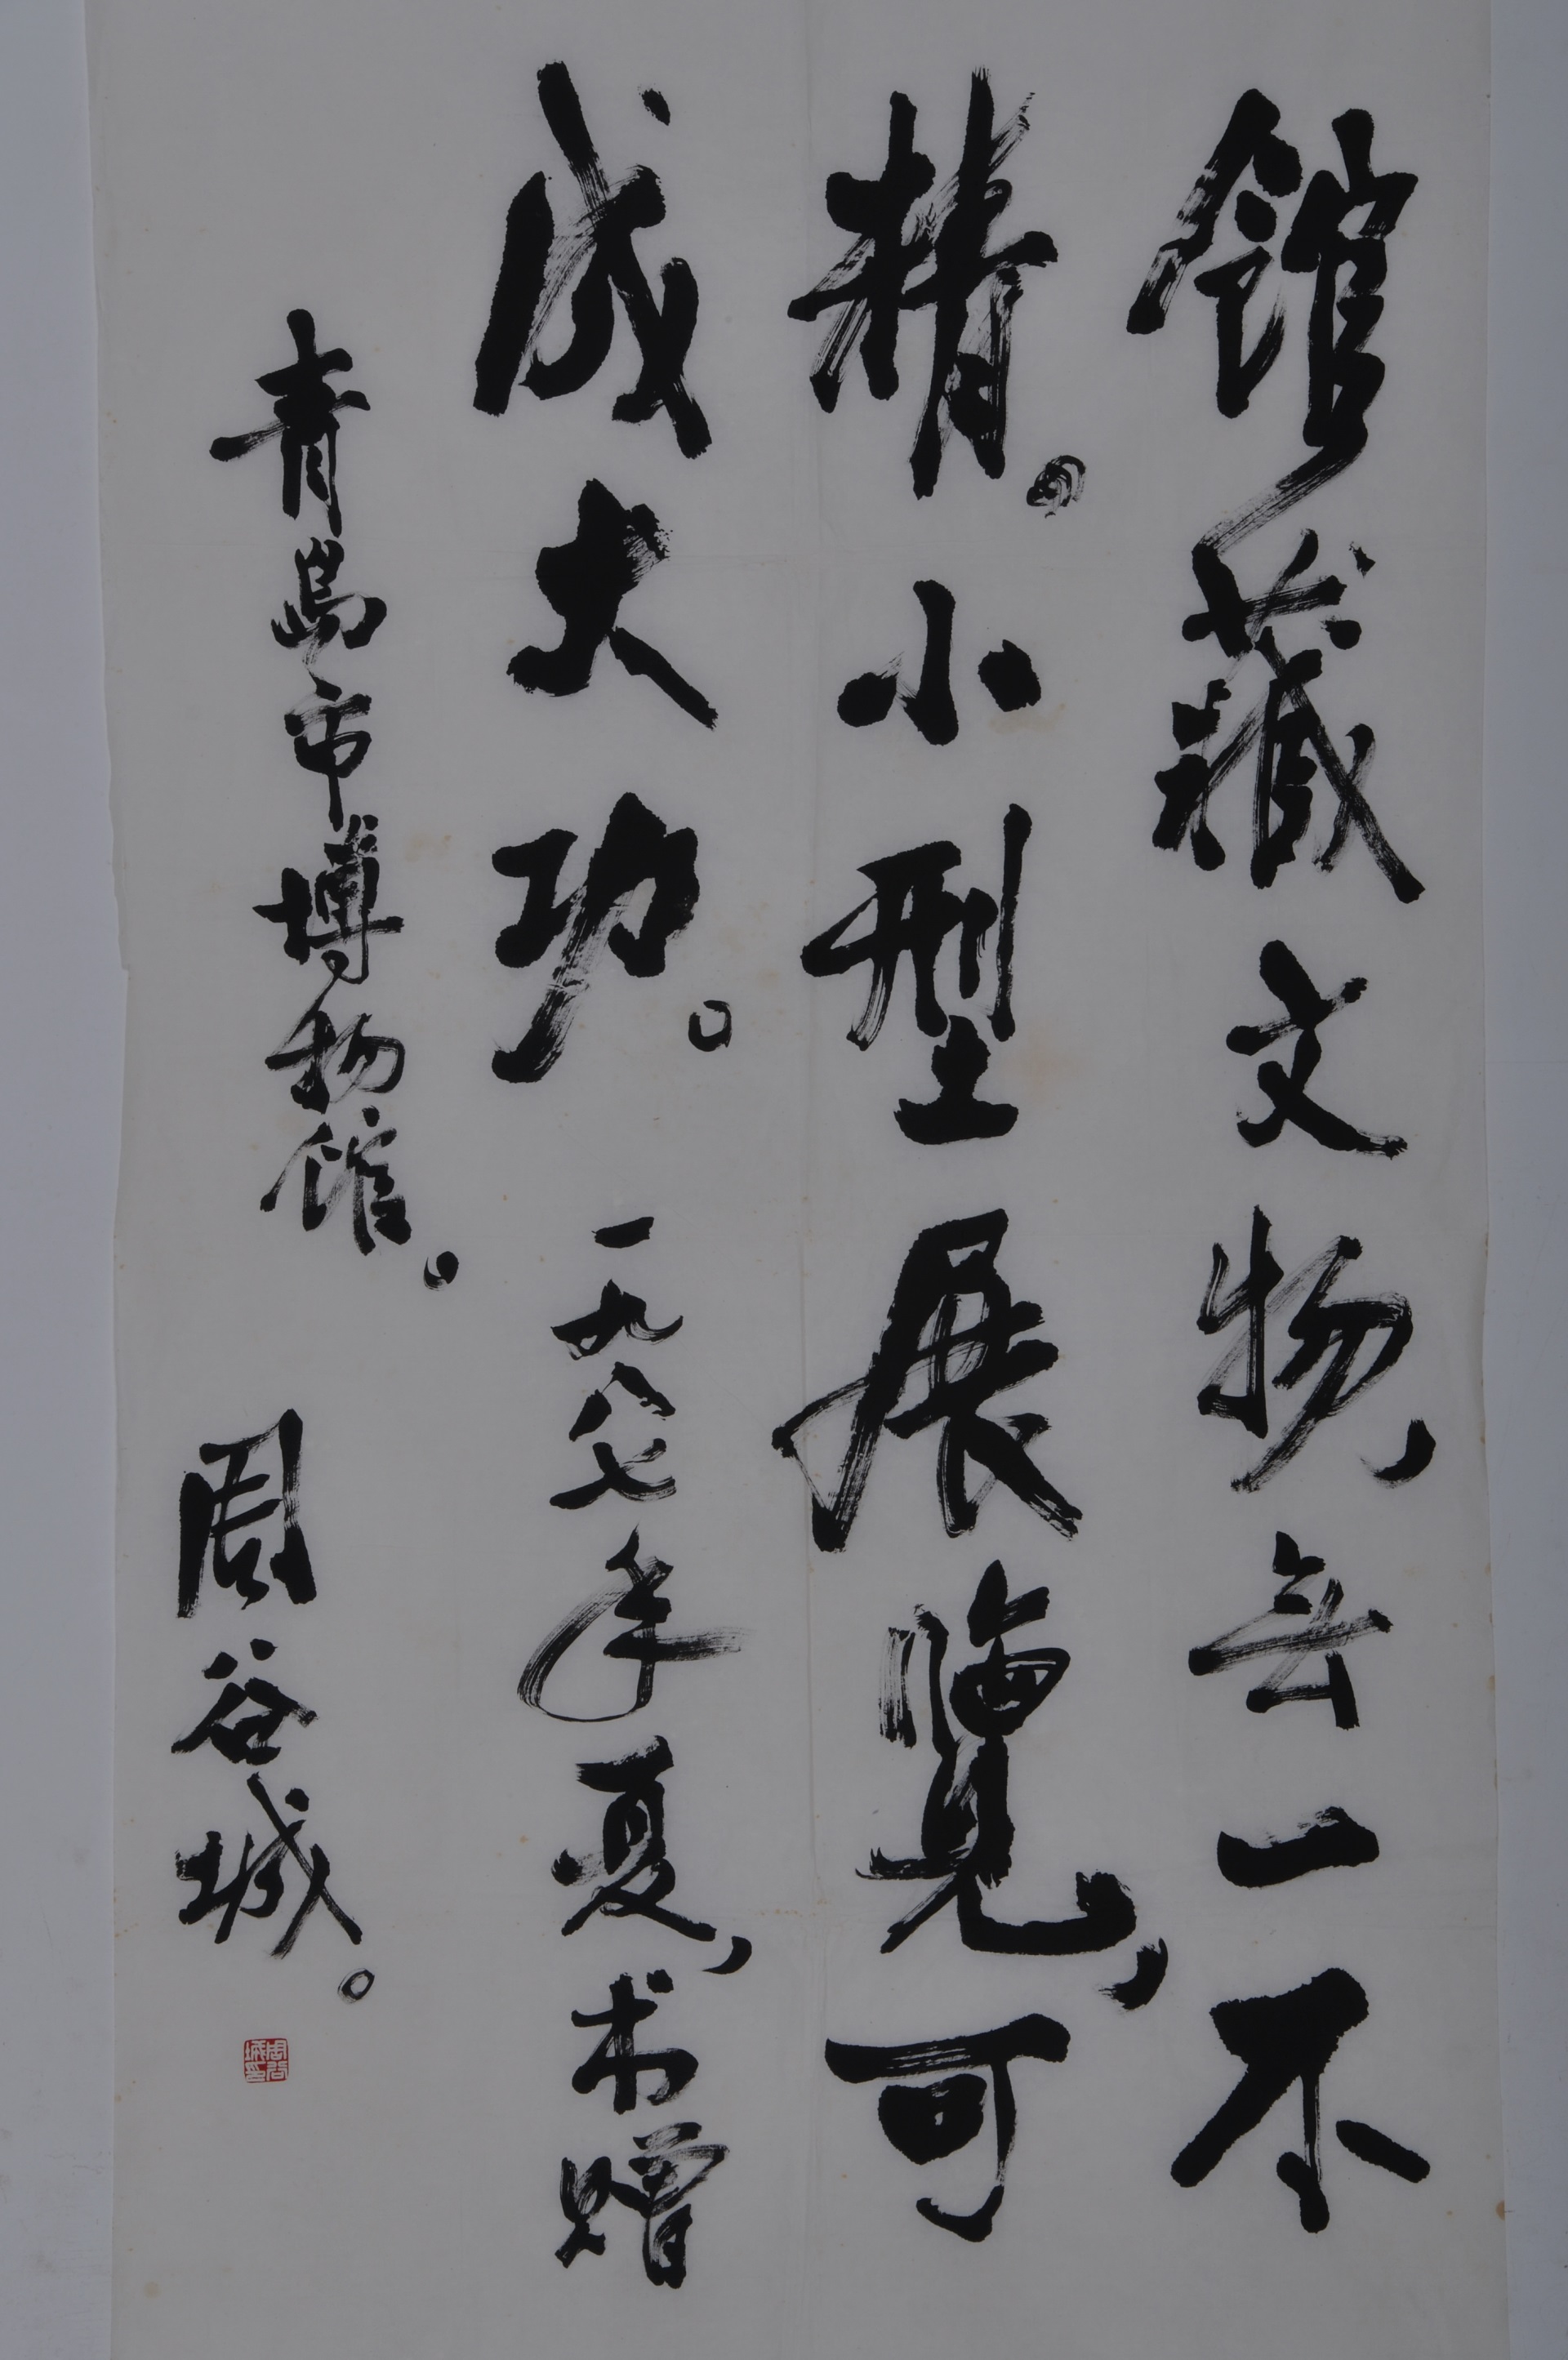 館藏文物，無一不
精。小型展覽，可
成大功。一九八七年夏，书贈
青島市博物館。周谷城。
周谷城印